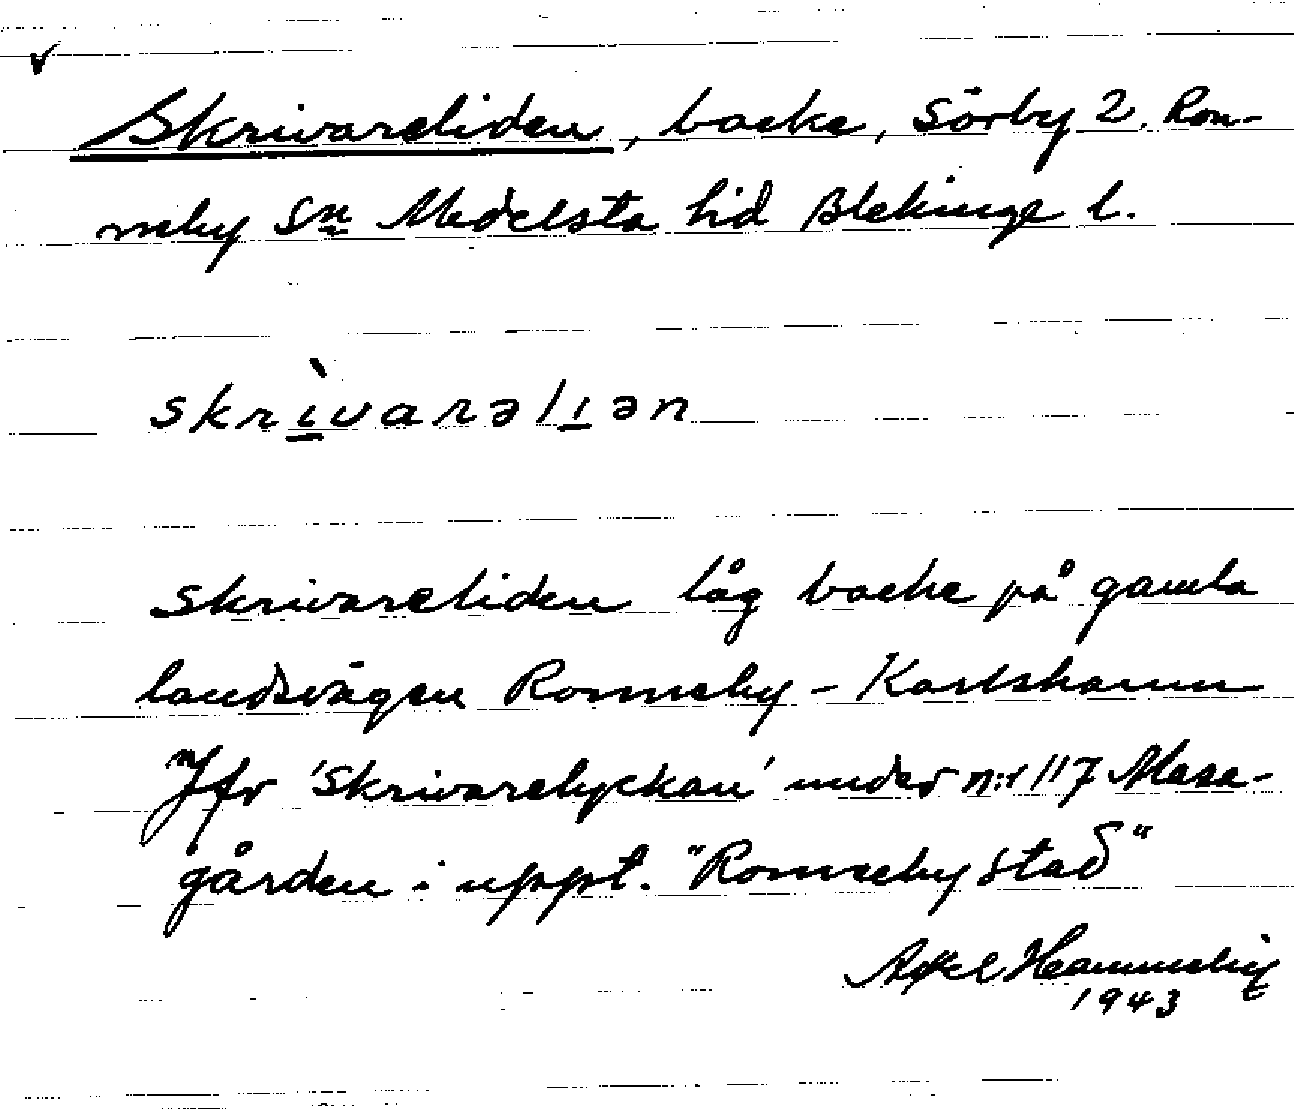 Skrivareliden, backe, Sörby 2. Ron-
neby Sn Medelsta hd Blekinge l.
skrìvarəlıən
Skrivareliden låg backe på gamla
landsvägen Ronneby - Karlshamn
Jfr 'Skrivarelyckan' under n:r 117 Mase-
gården i uppt. "Ronneby stad"
Axel
1943